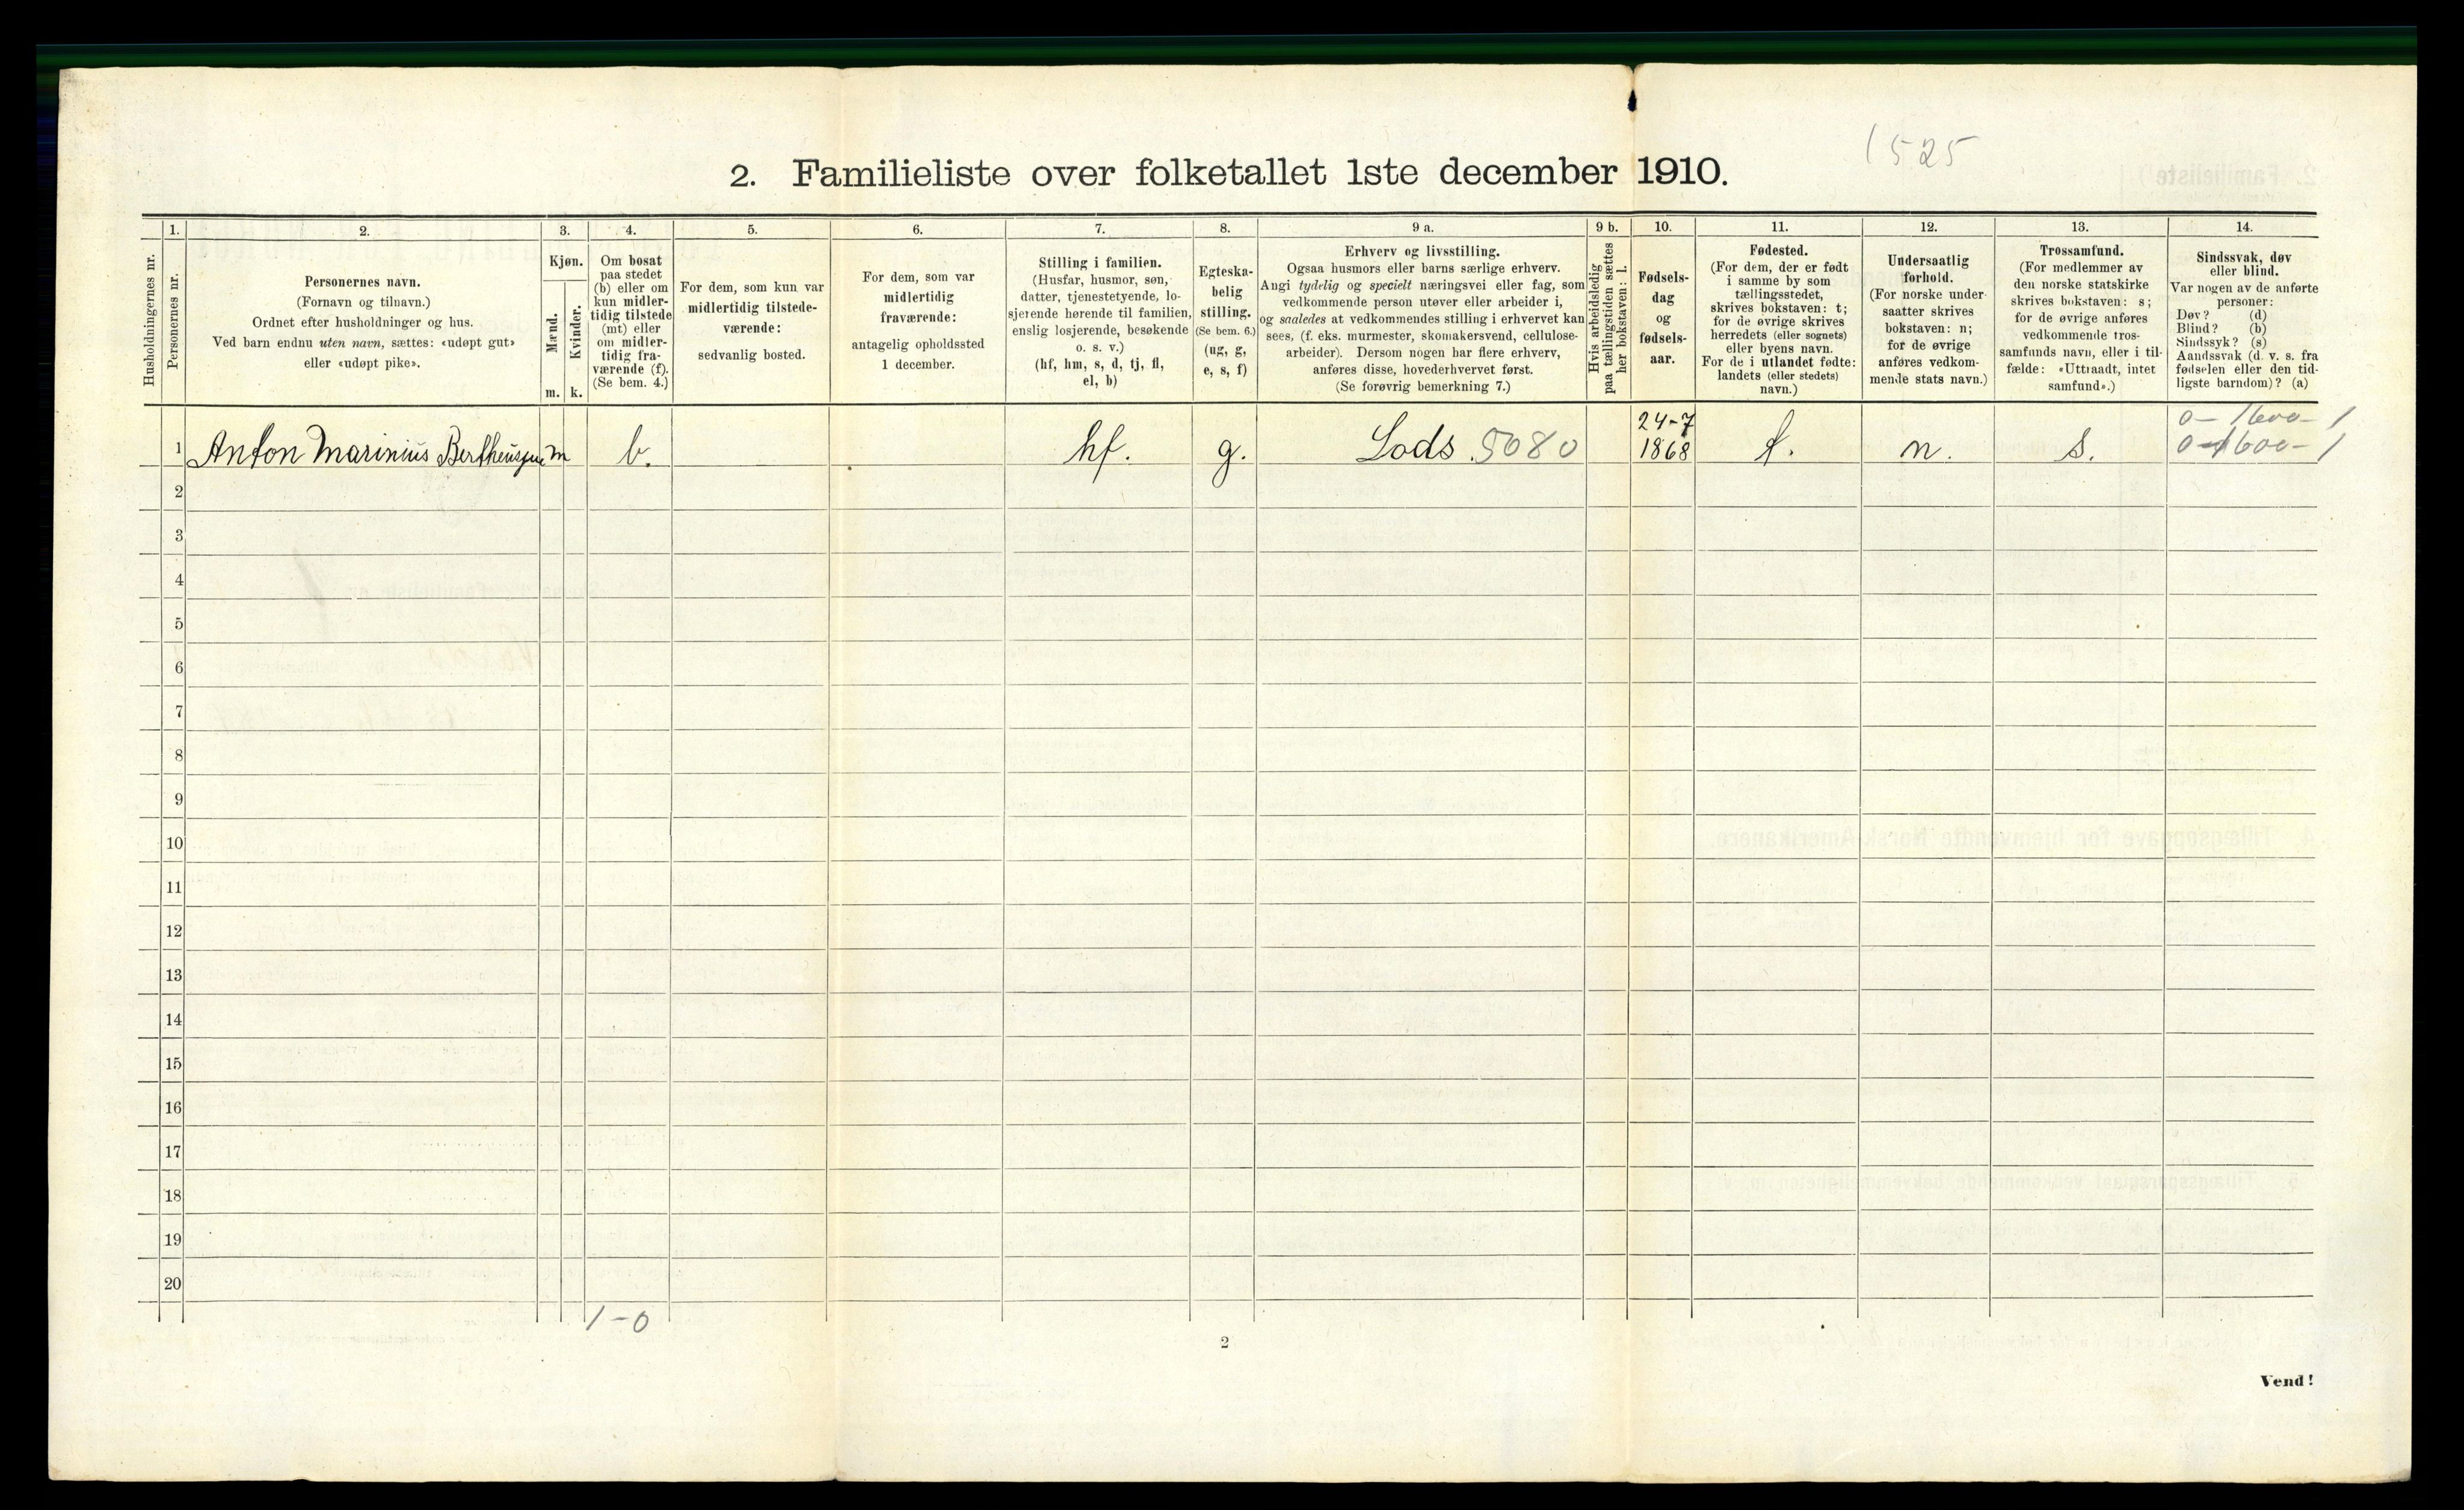 1525
2. Familieliste over folketallet 1ste december 1910.
1. 2. 3. 4. 5. 6. 7. 8. 9 a. 9 b. 10. 11. 12. 13. 14.
Husholdningernes nr.
Personernes nr.
Personernes navn.
(Fornavn og tilnavn.)
Ordnet efter husholdninger og hus.
Ved barn endnu uten navn, sættes: «udøpt gut»
eller «udøpt pike».
Kjøn.
Mænd.
Kvinder.
m. k.
Om bosat
paa stedet
(b) eller om
kun midler-
tidig tilstede
(mt) eller
om midler-
tidig fra-
værende (f).
(Se bem. 4.)
For dem, som kun var
midlertidig tilstede-
værende:
sedvanlig bosted.
For dem, som var
midlertidig
fraværende:
antagelig opholdssted
1 december.
Stilling i familien.
(Husfar, husmor, søn,
datter, tjenestetyende, lo-
sjerende hørende til familien,
enslig losjerende, besøkende
o. s. v.)
(hf, hm, s, d, tj, fl,
el, b)
Egteska-
belig
stilling.
(Se bem. 6.)
(ug, g,
e, s, f)
Erhverv og livsstilling.
Ogsaa husmors eller barns særlige erhverv.
Angi tydelig og specielt næringsvei eller fag, som
vedkommende person utøver eller arbeider i,
og saaledes at vedkommendes stilling i erhvervet kan
sees, (f. eks. murmester, skomakersvend, cellulose-
arbeider). Dersom nogen har flere erhverv,
anføres disse, hovederhvervet først.
(Se forøvrig bemerkning 7.)
Hvis arbeidsledig
paa tællingstiden sættes
her bokstaven: l.
Fødsels-
dag
og
fødsels-
aar.
Fødested.
(For dem, der er født
i samme by som
tællingsstedet,
skrives bokstaven: t;
for de øvrige skrives
herredets (eller sognets)
eller byens navn.
For de i utlandet fødte:
landets (eller stedets)
navn.)
Undersaatlig
forhold.
(For norske under-
saatter skrives
bokstaven: n;
for de øvrige
anføres vedkom-
mende stats navn.)
Trossamfund.
(For medlemmer av
den norske statskirke
skrives bokstaven: s;
for de øvrige anføres
vedkommende tros-
samfunds navn, eller i til-
fælde: «Uttraadt, intet
samfund».)
Sindssvak, døv
eller blind.
Var nogen av de anførte
personer:
Døv? (d)
Blind? (b)
Sindssyk? (s)
Aandssvak (d. v. s. fra
fødselen eller den tid-
ligste barndom)? (a)
24-7 0-1600-1
1 Anton Marinius m b. hf. g. Lods 5080 1868 t. n. s. 0-1600-1
2
3
4
5
6
7
8
9
10
11
12
13
14
15
16
17
18
19
20
1-0
2
Vend!